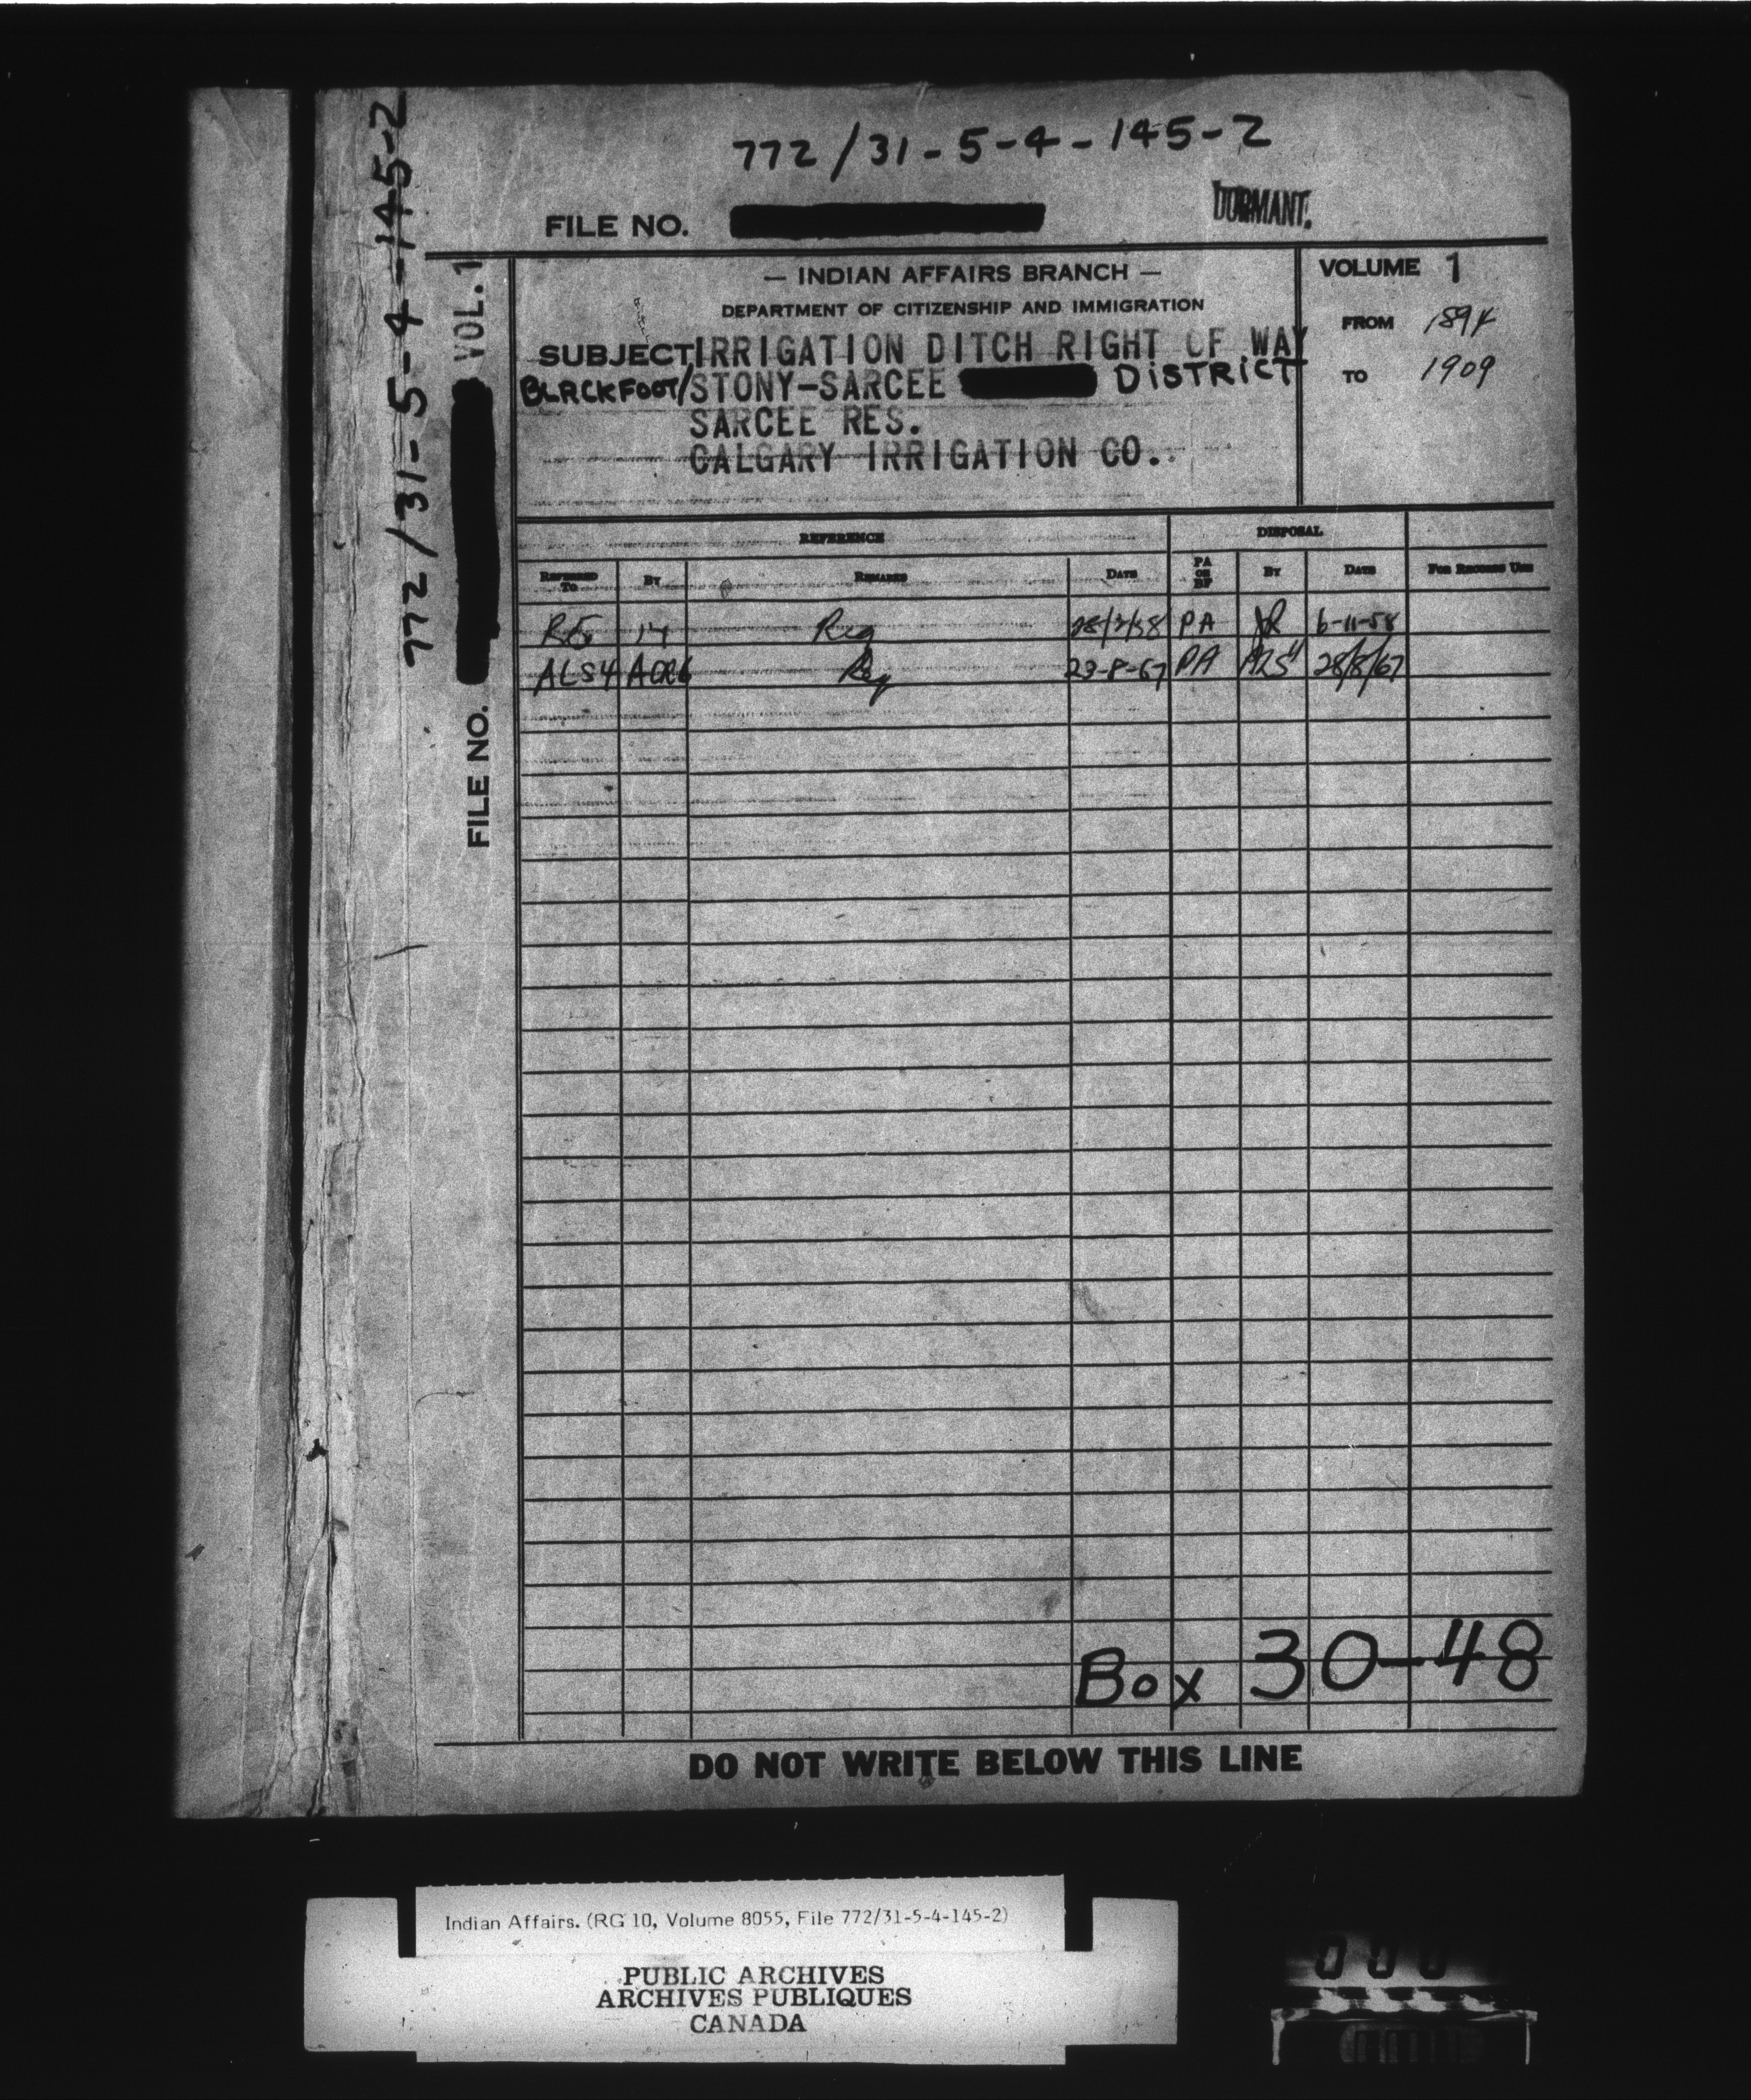 772/31-5-4-145-2
FILE NO.
DORMANT.
772/31-5-4-145-2
VOL. 1
FILE NO.
— INDIAN AFFAIRS BRANCH —
DEPARTMENT OF CITIZENSHIP AND IMMIGRATION
SUBJECT IRRIGATION DITCH RIGHT OF WAY
BLACKFOOT/STONY-SARCEE DISTRICT
SARCEE RES.
CALGARY IRRIGATION CO.
VOLUME 1
FROM 1894
TO 1909
REFERENCE DISPOSAL
REFERRED TO BY REMARKS DATE PA OR BF BY DATE FOR RECORDS USE
Req PA 6-11-58
ALS4 Req 23-8-67 PA 28/8/67
Box 30-48
DO NOT WRITE BELOW THIS LINE
Indian Affairs. (RG 10, Volume 8055, File 772/31-5-4-145-2)
PUBLIC ARCHIVES
ARCHIVES PUBLIQUES
CANADA
000